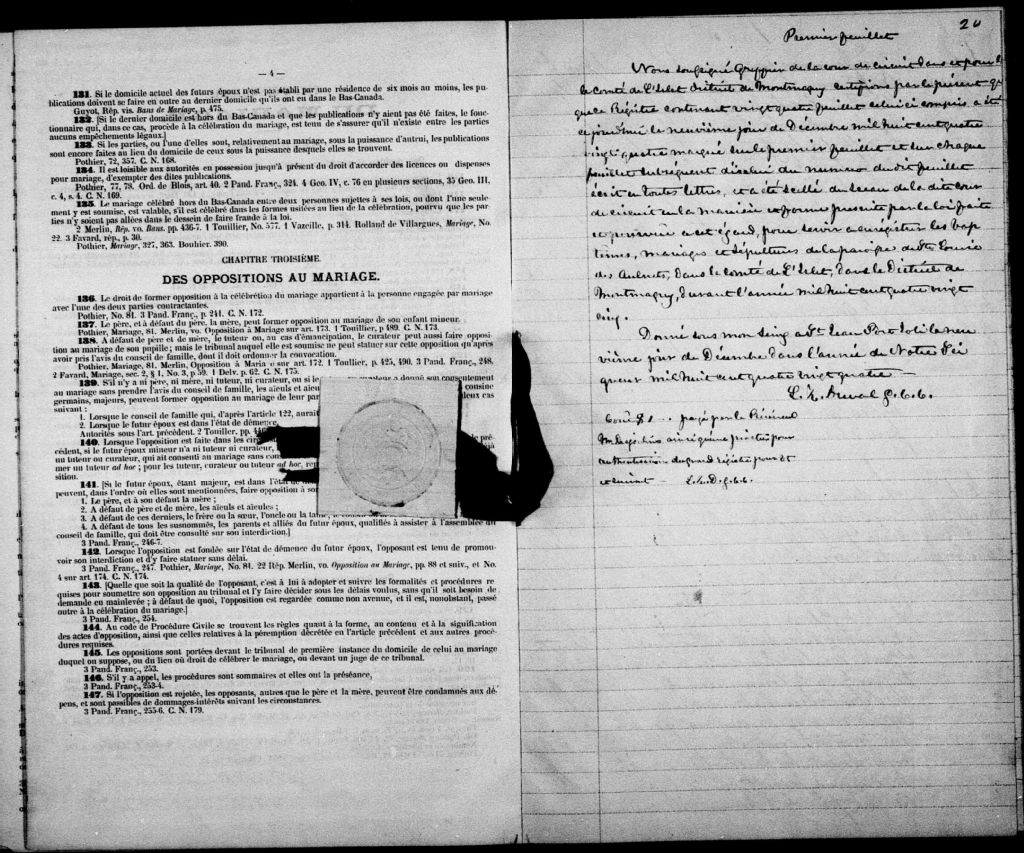 — 4 —
131. Si le domicile actuel des futurs époux n'est pas établi par une résidence de six mois au moins, les pu-
blications doivent se faire en outre au dernier domicile qu'ils ont eu dans le Bas-Canada.
Guyot, Rép. vis. Bans de Mariage, p. 475.
132. [Si le dernier domicile est hors du Bas-Canada et que les publications n'y aient pas été faites, le fonc-
tionnaire qui, dans ce cas, procède à la célébration du mariage, est tenu de s'assurer qu'il n'existe entre les parties
aucuns empêchements légaux.]
133. Si les parties, ou l'une d'elles sont, relativement au mariage, sous la puissance d'autrui, les publications
sont encore faites au lieu du domicile de ceux sous la puissance desquels elles se trouvent.
Pothier, 72, 357. C. N. 168.
134. Il est loisible aux autorités en possession jusqu'à présent du droit d'accorder des licences ou dispenses
pour mariage, d'exempter des dites publications.
Pothier, 77, 78. Ord. de Blois, art. 40. 2 Pand. Franç., 324. 4 Geo. IV, c. 76 en plusieurs sections, 35 Geo. III,
c. 4, s. 4. C. N. 169.
135. Le mariage célébré hors du Bas-Canada entre deux personnes sujettes à ses lois, ou dont l'une seule-
ment y est soumise, est valable, s'il est célébré dans les formes usitées au lieu de la célébration, pourvu que les par-
ties n'y soient pas allées dans le dessein de faire fraude à la loi.
2 Merlin, Rép. vo. Bans. pp. 436-7. 1 Touillier, No. 577. 1 Vazeille, p. 314. Rolland de Villargues, Mariage, No.
22. 3 Favard, rép., p. 30.
Pothier, Mariage, 327, 363. Bouhier. 390.
CHAPITRE TROISIÈME.
DES OPPOSITIONS AU MARIAGE.
136. Le droit de former opposition à la célébrétion du mariage appartient à la personne engagée par mariage
avec l'une des deux parties contractantes.
Pothier, No. 81. 3 Pand. Franç., p. 241. C. N. 172.
137. Le père, et à défaut du père, la mère, peut former opposition au mariage de son enfant mineur.
Pothier, Mariage, 81. Merlin, vo. Opposition à Mariage sur art. 173. 1 Touillier, p 489. C. N. 173.
138. A défaut de père et de mère, le tuteur ou, au cas d'émancipation, le curateur peut aussi faire opposi-
tion au mariage de son pupille; mais le tribunal auquel elle est soumise ne peut statuer sur cette opposition qu'après
avoir pris l'avis du conseil de famille, dont il doit ordonner la convocation.
Pothier, Mariage, 81. Merlin, Opposition à Maria e sur art. 172. 1 Toullier, p 425, 490. 3 Pand. Franç., 248.
2 Favard, Mariage, sec. 2, § 1, No. 3, p 59. 1 Delv. p. 62. C. N. 175.
139. S'il n'y a ni père, ni mère, ni tuteur, ni curateur, ou si le curateur a donné son consentement
au mariage sans prendre l'avis du conseil de famille, les aïeuls et aïeu cousine
germains, majeurs, peuvent former opposition au mariage de leur par deux cas
suivant :
1. Lorsque le conseil de famille qui, d'après l'article 122, aurait
2. Lorsque le futur époux est dans l'état de démence.
Autorités sous l'art. précédent. 2 Touiller, pp. 446
140. Lorsque l'opposition est faite dans les circ le pré-
cédent, si le futur époux mineur n'a ni tuteur ni curateur,
un tuteur ou curateur, qui ait consenti au mariage sans cons
mer un tuteur ad hoc ; pour les tuteur, curateur ou tuteur ad hoc, rep
sition.
141. [Si le futur époux, étant majeur, est dans l'état de
peuvent, dans l'ordre où elles sont mentionnées, faire opposition à son
1. Le père, et à son défaut la mère ;
2. A défaut de père et de mère, les aïeuls et aïeules ;
3. A défaut de ces derniers, le frère ou la sœur, l'oncle ou la tante,
4. A défaut de tous les susnommés, les parents et alliés du futur époux, qualifiés à assister à l'assemblée du
conseil de famille, qui doit être consulté sur son interdiction.]
3 Pand. Franç., 246-7.
142. Lorsque l'opposition est fondée sur l'état de démence du futur époux, l'opposant est tenu de promou-
voir son interdiction et d'y faire statuer sans délai.
3 Pand. Franç., 247. Pothier, Mariage, No. 81. 22 Rép. Merlin, vo. Opposition au Mariage, pp. 88 et suiv., et No.
4 sur art. 174. C. N. 174.
143. [Quelle que soit la qualité de l'opposant, c'est à lui à adopter et suivre les formalités et procédures re-
quises pour soumettre son opposition au tribunal et l'y faire décider sous les délais voulus, sans qu'il soit besoin de
demande en mainlevée ; à défaut de quoi, l'opposition est regardée comme non avenue, et il est, nonobstant, passé
outre à la célébration du mariage.]
3 Pand. Franç., 254.
144. Au code de Procédure Civile se trouvent les règles quant à la forme, au contenu et à la signification
des actes d'opposition, ainsi que celles relatives à la péremption décrétée en l'article précédent et aux autres procé-
dures requises.
145. Les oppositions sont portées devant le tribunal de première instance du domicile de celui au mariage
duquel on suppose, ou du lieu où droit de célébrer le mariage, ou devant un juge de ce tribunal.
3 Pand. Franç., 253.
146. S'il y a appel, les procédures sont sommaires et elles ont la préséance,
3 Pand. Franç., 253-4.
147. Si l'opposition est rejetée, les opposants, autres que le père et la mère, peuvent être condamnés aux dé-
pens, et sont passibles de dommages-intérêts suivant les circonstances.
3 Pand. Franç., 255-6. C. N. 179.
Premier feuillet
Nous soussigné Greffier de la cour de circuit dans et pour le
le Comté de L'Islet District de Montmagny certifions par la présent que
que le Régistre contenant vingt quatre feuillet celui ci compris a été
ce jourd'hui le neuvième jour de Décembre mil huit cent quatre
vingt quatre marqué sur le premier feuillet et sur chaque
feuillet subséquent d'icelui du numéro du dit feuillet
écrit en toutes lettres, et a été scellé du sceau de la dite cour
de circuit en la manière et forme prescrite par la loi faite
et pourvue a cet égard, pour servir a enregistrer les bap
têmes, mariages et sépultures de la paroisse de Ste Louise
des Aulnets, dans le comté de L'Islet, dans le District de
Montmagny, durant l'année mil huit cent quatre vingt
cinq.
Donné sous mon seing a St Jean Port Joli le neu
vième jour de Décembre dans l'année de Notre Sei
gneur mil huit cent quatre vingt quatre
L. Z. Duval g.c.c.
pagé par le Révérend
pour
authentication du grand régistre pour St
L.Z.D. g.c.c.